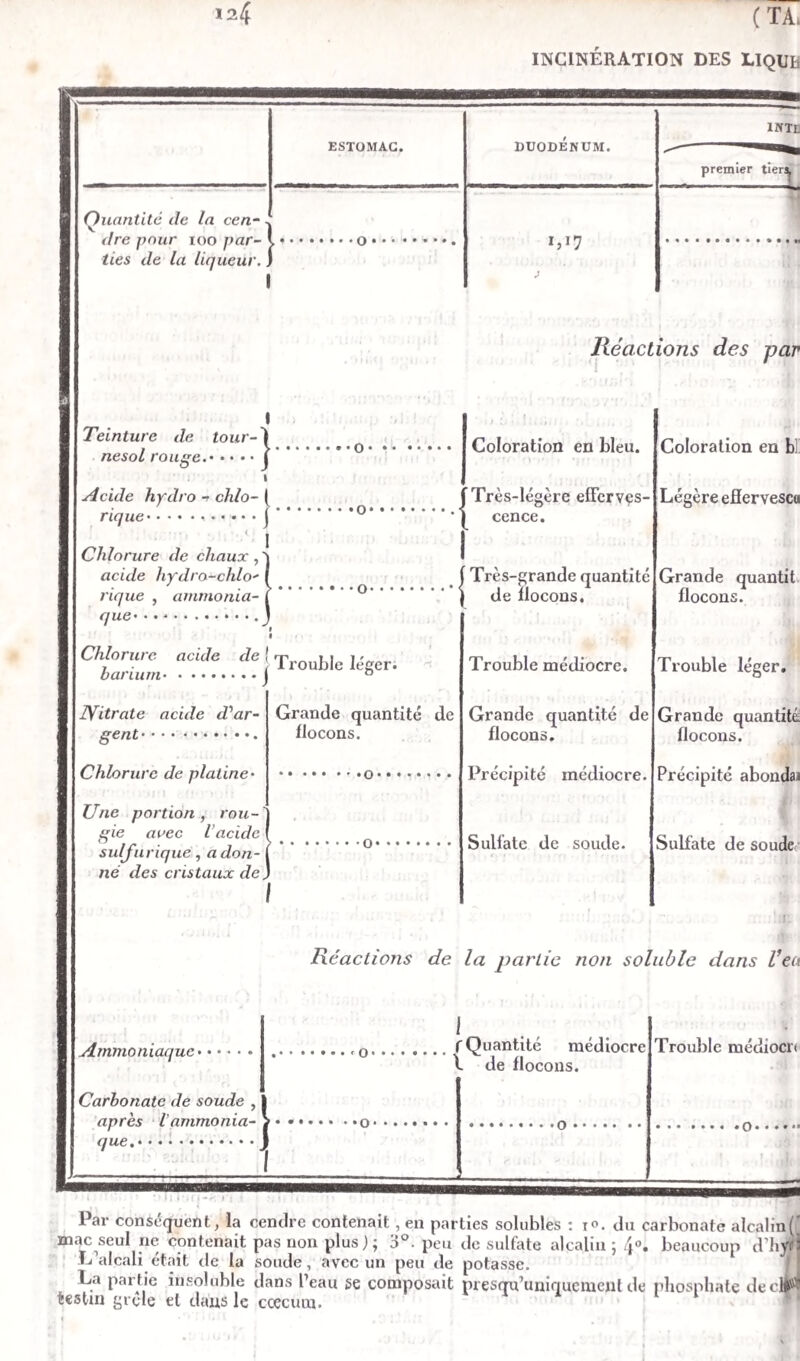 124
(TA
INCINÉRATION DES LIQUE
ESTOMAC. DUODÉNUM. INTE
premier tiers,
Quantité de la cen-
dre pour 100 par- ........0......... 1,17 .............
ties de la liqueur.
Réactions des par
Teinture de tour- Coloration en bleu. Coloration en bl
nesol rouge..... ........0........
Acide hydro-chlo- Très-légère efferves- Légère effervesce
rique.......... ........0........ cence.
Chlorure de chaux,
acide hydro-chlo- Très-grande quantité Grande quantit
rique, ammonia- ........0........ de flocons. flocons.
que............
Chlorure acide de Trouble léger. Trouble médiocre. Trouble léger.
barium.........
Nitrate acide d'ar- Grande quantité de Grande quantité de Grande quantité
gent........... flocons. flocons. flocons.
Chlorure de platine. ........0........ Précipité médiocre. Précipité abondan
Une portion, rou-
gie avec l'acide
sulfurique, a don- ........0........ Sulfate de soude. Sulfate de soude
né des cristaux de
Réactions de la partie non soluble dans l'ea
Ammoniaque...... ........0........ Quantité médiocre Trouble médiocre
de flocons.
Carbonate de soude,
après l'ammonia- ........0........ .........0....... ........0......
que.............
Par conséquent, la cendre contenait, en parties solubles : 1°. du carbonate alcalin (
mac seul ne contenait pas non plus); 3°. peu de sulfate alcalin; 4°. beaucoup d'hy
L'alcali était de la soude, avec un peu de potasse.
La partie insoluble dans l'eau se composait presqu'uniquement de phosphate de ch
testin grêle et dans le cœcum.